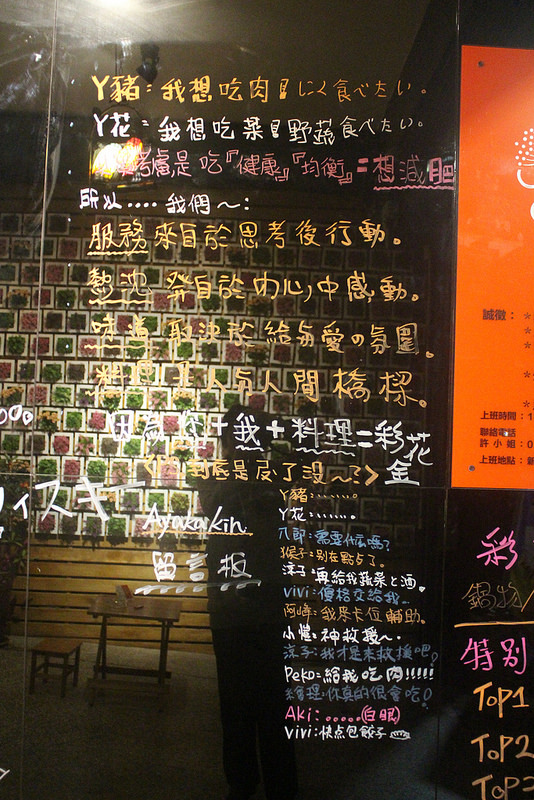 Y豬：我想吃肉 にく食べたい。
Y花：我想吃菜 野蔬食べたい。
考慮是吃『健康』『均衡』=想減肥
所以..... 我們～：
服務 來自於思考後行動。
熱忱 發自於內心,中感動。
味道 取決於給与愛の氛圍。
料理 人与人間橋樑。
因為您+我+料理=彩花金
是瘦了没～?>
ィスキー
Ayakakin
留言板
Y豬：......。
Y花：......。
八郎：需要什麼嗎?
猴子：别在點了。
淳子：再給我蔬菜と酒。
ViVi：價格交給我..
阿峰：我來卡位輔助。
小慬：神救援～.
淳子：我才是来救援吧!
Peko=給我吃肉!!!!!
經理：你真的很會吃!
Aki：.....(白眼)
ViVi：快点包餃子
誠徵：
上班時間：1
聯絡電話
許小姐：0
上班地點：
彩
鍋物/
特别
Top1
Top2
Top3